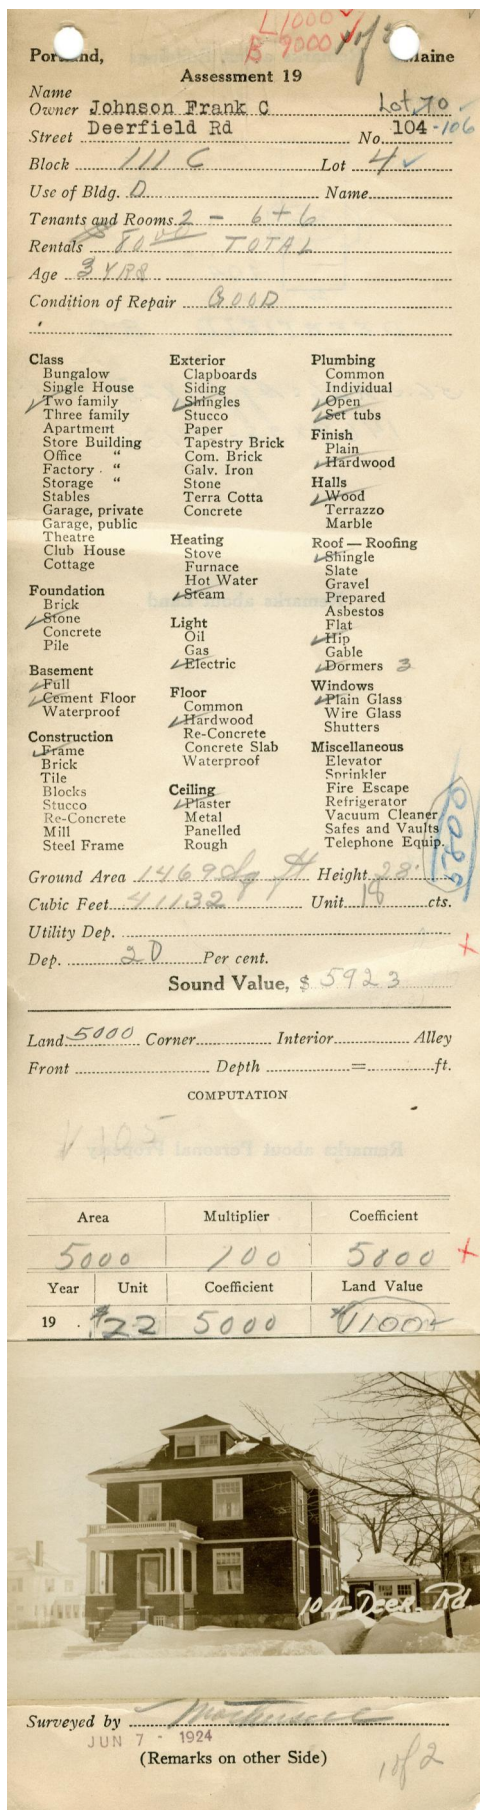 L 1000 ✓
B 9000 ✓ 1 of 2
Portland, Maine
Assessment 19
Name
Owner Johnson Frank C Lot 70
Street Deerfield Rd No. 104 -106
Block 111 C Lot 4 ✓
Use of Bldg. D Name
Tenants and Rooms 2 - 6+6
Rentals $80.00 TOTAL
Age 3 YRS
Condition of Repair GOOD
Class
Bungalow
Single House
✓ Two family
Three family
Apartment
Store Building
Office "
Factory "
Storage "
Stables
Garage, private
Garage, public
Theatre
Club House
Cottage
Foundation
Brick
✓ Stone
Concrete
Pile
Basement
✓ Full
✓ Cement Floor
Waterproof
Construction
✓ Frame
Brick
Tile
Blocks
Stucco
Re-Concrete
Mill
Steel Frame
Exterior
Clapboards
Siding
✓ Shingles
Stucco
Paper
Tapestry Brick
Com. Brick
Galv. Iron
Stone
Terra Cotta
Concrete
Heating
Stove
Furnace
Hot Water
✓ Steam
Light
Oil
Gas
✓ Electric
Floor
Common
✓ Hardwood
Re-Concrete
Concrete Slab
Waterproof
Ceiling
✓ Plaster
Metal
Panelled
Rough
Plumbing
Common
Individual
✓ Open
✓ Set tubs
Finish
Plain
✓ Hardwood
Halls
✓ Wood
Terrazzo
Marble
Roof — Roofing
✓ Shingle
Slate
Gravel
Prepared
Asbestos
Flat
✓ Hip
Gable
✓ Dormers 3
Windows
✓ Plain Glass
Wire Glass
Shutters
Miscellaneous
Elevator
Sprinkler
Fire Escape
Refrigerator
Vacuum Cleaner
Safes and Vaults
Telephone Equip.
5800
Ground Area 1469 Sq ft Height 28'
Cubic Feet 41132 Unit 18 cts.
Utility Dep.
Dep. 20 Per cent.
Sound Value, $ 5923
Land 5000 Corner Interior Alley
Front Depth = ft.
COMPUTATION
Area Multiplier Coefficient
5000 100 5000
Year Unit Coefficient Land Value
19 $22 5000 $1100
104 Deer. Rd.
Surveyed by
JUN 7 - 1924
(Remarks on other Side)
1 of 2